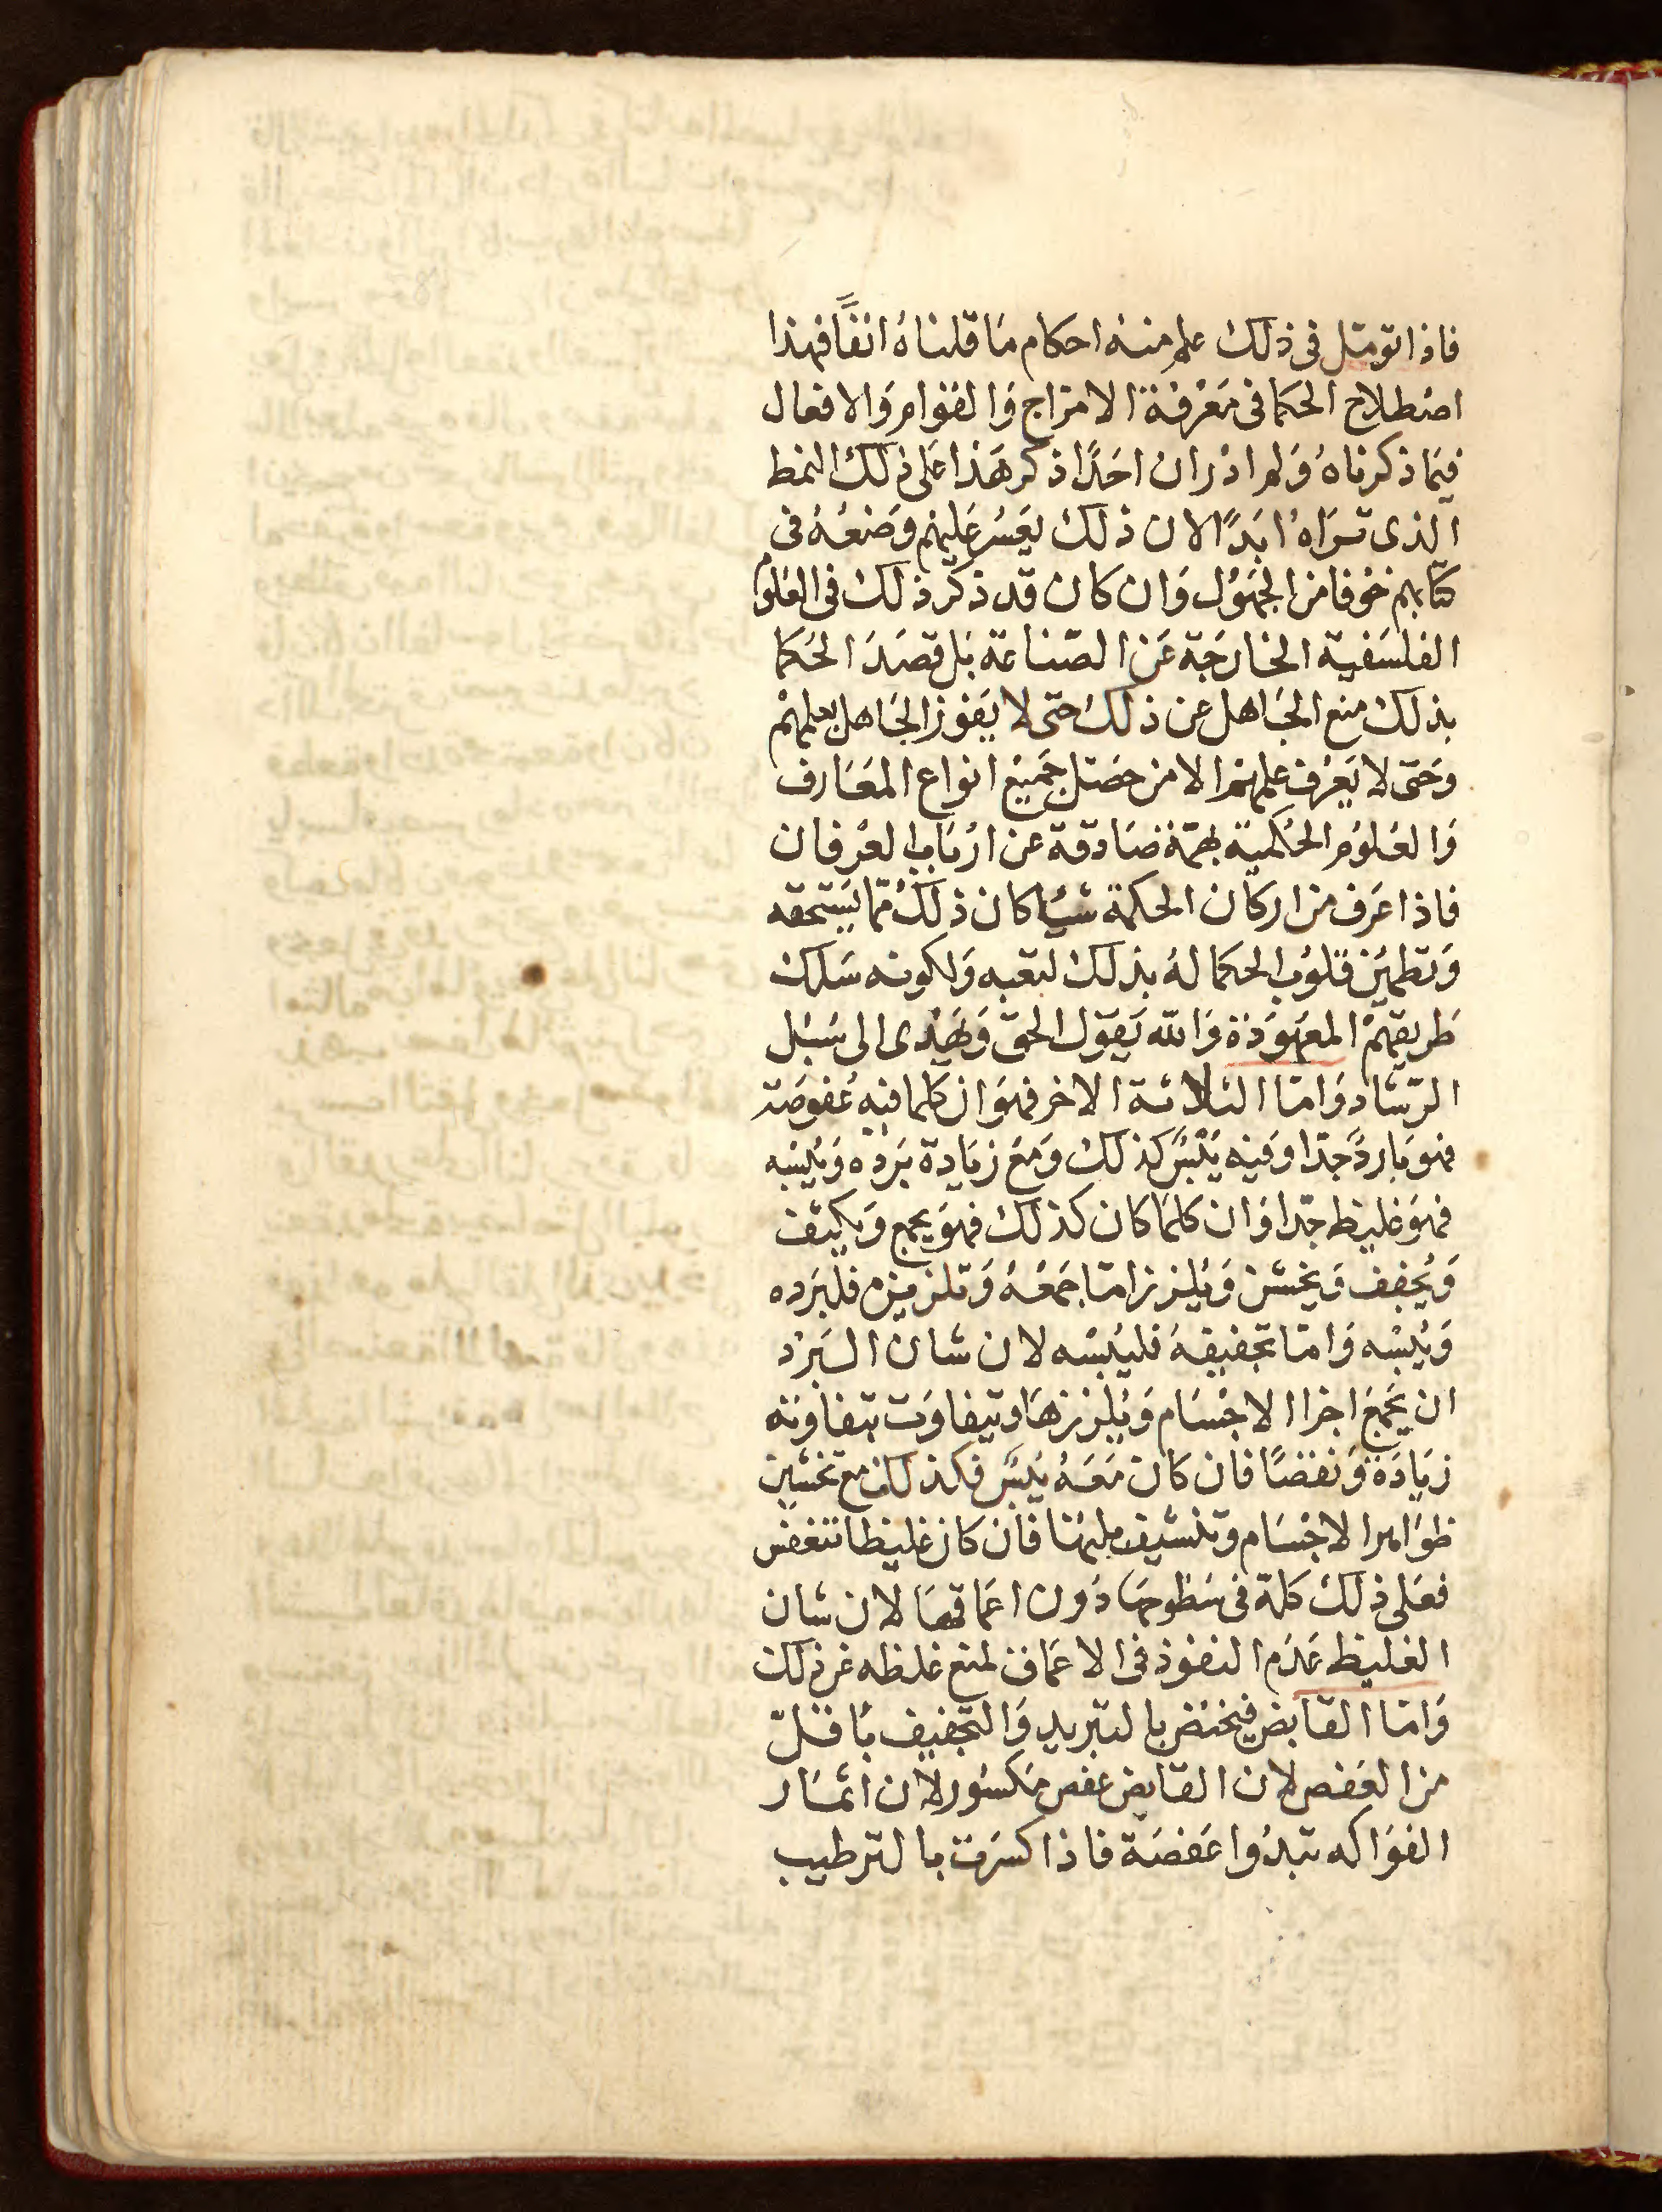 فاذا تومتل فى ذلك علم منه احكام مَا قلنَاهُ انفًا فهذا
اصْطلاح الحكما فى مَعْرفة الامزاج وَالقوَامِ وَالافعال
فيمَا ذكرناهُ وَلم ادْر ان احَدًا ذكر هَذا عَلى ذلك النمط
الذى ترَاهُ ابَدًا لان ذلك يَعسُر عَليهم وضعُهُ فى
كتابهم خوفا من الجهَوُل وَان كان قد ذكر ذلك فى العلوم
الفلسَفية الخارجَة عَن الصّناعة بَل قصَدَ الحكما
بذلك منع الجَاهل عن ذلك حتى لا يَفوز الجَاهل بعلمهمْ
وَحَتى لا يَعْرف علمهم الا من حصَّل جَميْع انواع المعَارف
وَالعُلوُم الحكمية بهمّة صَادقة عن ارْبَاب العرْفان
فاذا عَرف من اركان الحكمة شيْا كان ذلك ممّا يَستحقه
وَتطمَيِن قلوُب الحكما لهُ بذلك لتعَبه وَلكونه سَلك
طريقهمْ المعَهوَدَة وَالله يَقول الحق وَيَهْدى الى سَبُل
الرّشاد وَامّا الثلاثة الاخر فهوَ ان كلما فيه عُفوصَة
فهوَ بَاردٌ جدّا وَفيه يَبْسٌ كذلك وَمَع زيَادة بَرْده وَيُبْسه
فهوَ غليظ جدّا وَان كلمَا كان كذلك فهوَ يجمع وَيكثف
وَيُجفف وَيخشن وَيُلزز امّا جَمعُهُ وَتلزيزه فلبَرَده
وَيُبْسه وَامّا تجفيفهُ فليُبْسه لان شان البَرْد
ان يَجْمع اجزا الاجْسَام وَيُلززهَا وَيتفاوَت بتفاوته
زيَادَة وَنقصًا فان كان مَعَهُ يُبسٌ فكذلك مع تخشين
ظوَاهر الاجْسَام وتنشيف بلتهَا فان كان غليظا تنغفس
فعَلى ذلك كلّه فى سَطوحهَا دَون اعمَاقهَا لان شان
الغليظ عَدَم النفوذ فى الاعمَاق لمنع غلظه عَن ذلك
وَامّا القابض فيختصّ بالتبريد وَالتجفيف باقلّ
من العَفص لان القابض عفص مَكسُور لان اثمَار
الفوَاكه تبدُوا عَفصَة فاذا كسرَت بالترطيب